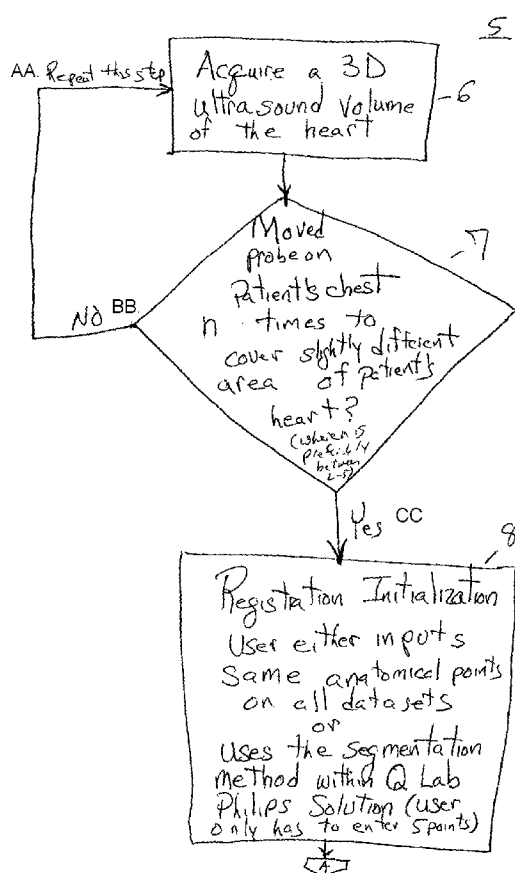 5
AA. Repeat this step
Acquire a 3D
ultrasound volume
of the heart
6
Moved
probe on
Patient's chest
n times to
cover slightly different
area of patient's
heart?
(where n is
preferably
between
2-5)
7
NO BB.
Yes CC
8
Registration Initialization
User either inputs
Same anatomical points
on all datasets
or
uses the segmentation
method within Q Lab
Philips Solution (user
only has to enter 5 points)
A